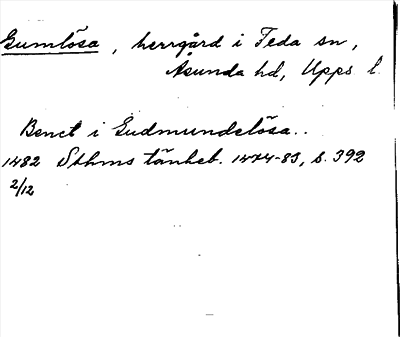 Gumlösa, herrgård i Teda sn,
Åsunda hd, Upps l.
Benct i Gudmundelösa..
1482 Sthms tänkeb. 1474-83, s. 392
2/12